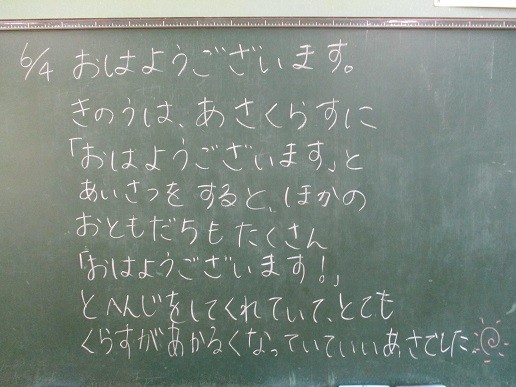 6/4 おはようございます。
きのうは、あさくらすに
「おはようございます」と
あいさつをすると、ほかの
おともだちもたくさん
「おはようございます!」
とへんじをしてくれていて、とても
くらすがあかるくなっていていいあさでした。